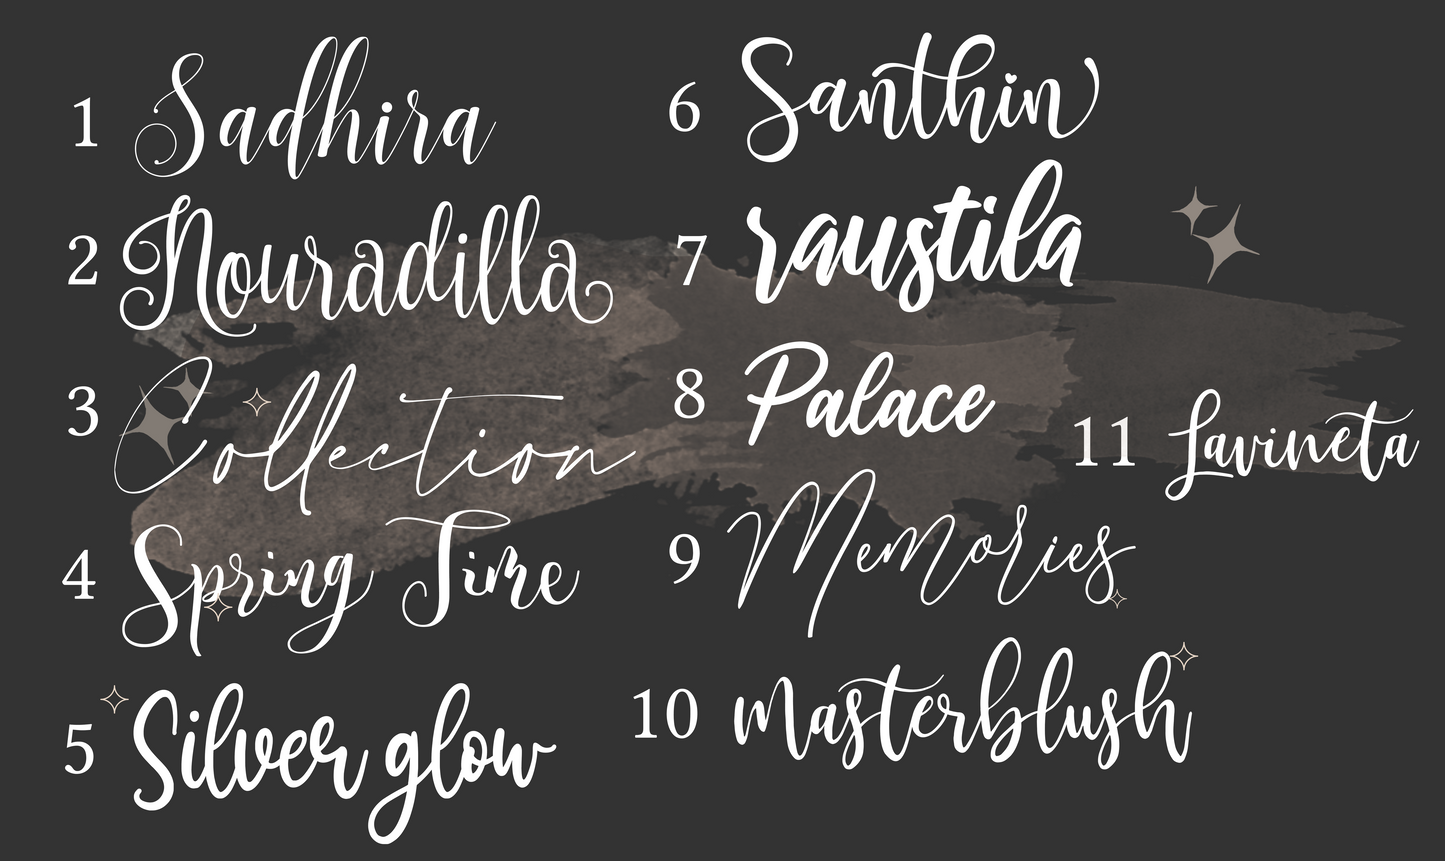 1 Sadhira
2 Nouradilla
3 Collection
4 Spring Time
5 Silver glow
6 Santhin
7 raustila
8 Palace
9 Memories
10 masterblush
11 Lavineta